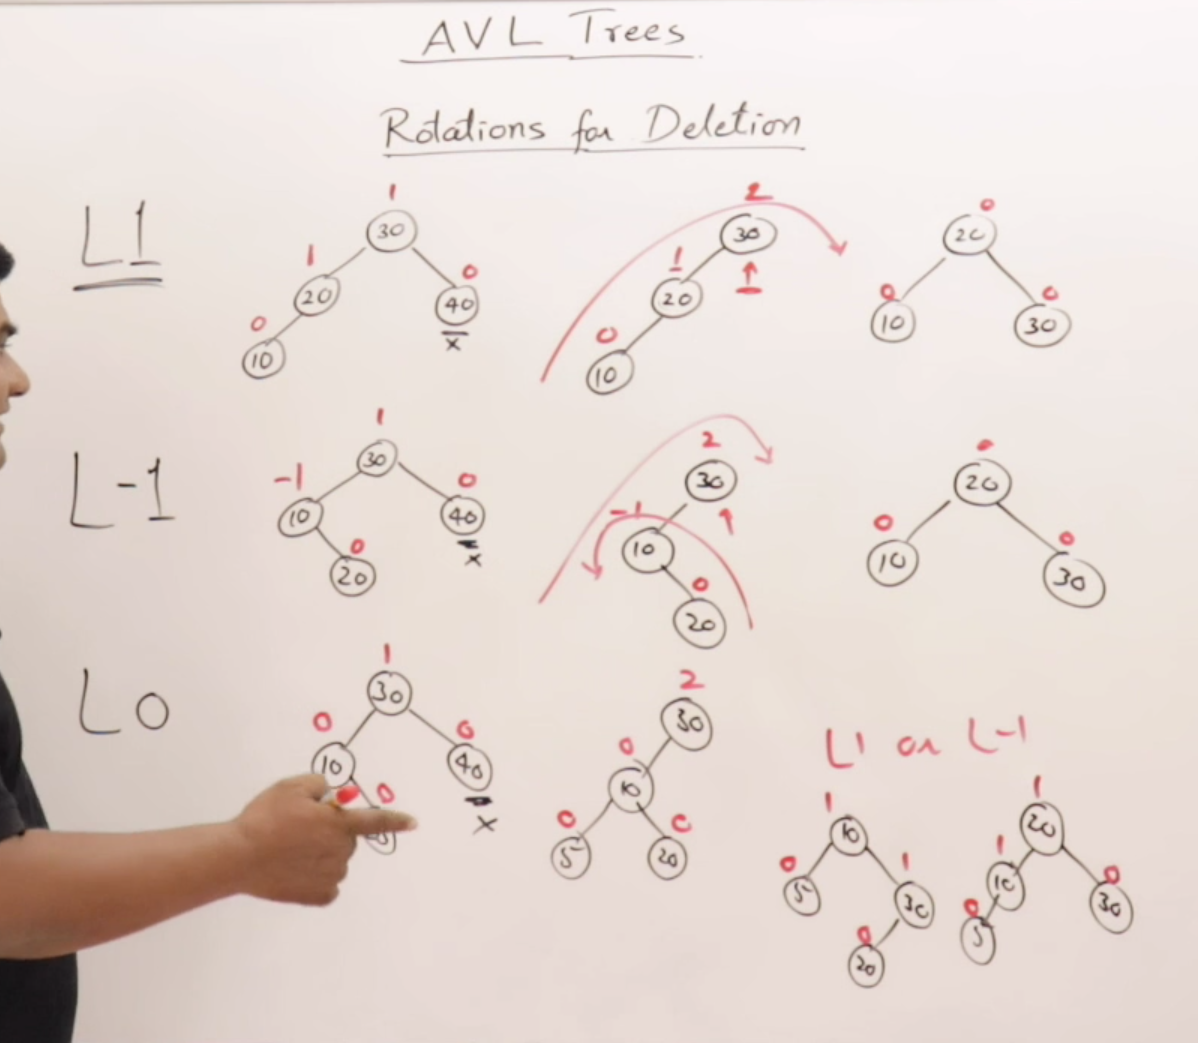 AVL Trees
Rotations for Deletion
L1
1
30
1
20
0
40
0
10
x
2
30
1
20
0
10
0
20
0
10
0
30
L-1
1
30
-1
10
0
40
0
20
x
2
30
-1
10
0
20
0
20
0
10
0
30
L0
1
30
0
10
0
40
0
x
2
30
0
10
0
5
0
20
L1 or L-1
1
10
0
5
1
30
0
20
1
20
1
10
0
30
0
5